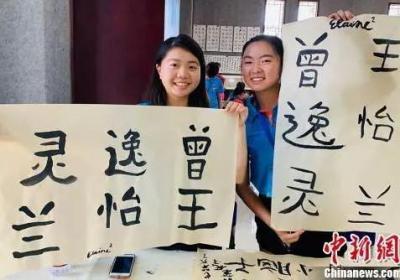 曾逸灵
王怡兰
Elaine²
Elaine²
王怡兰
曾逸灵
中新网
Chinanews.com
www.chinanews.com